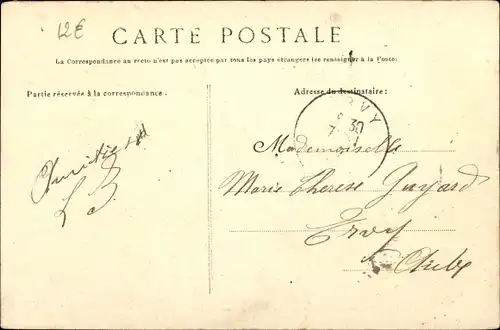 12€
CARTE POSTALE
La Correspondance au recto n'est pas acceptée par tous les pays étrangers (se renseigner à la Poste)
Partie réservée à la correspondance.
Adresse du destinataire:
RVY
30
Mademoiselle
Amitiés
Marie Therese Guyard
L B
Ervy
Aube